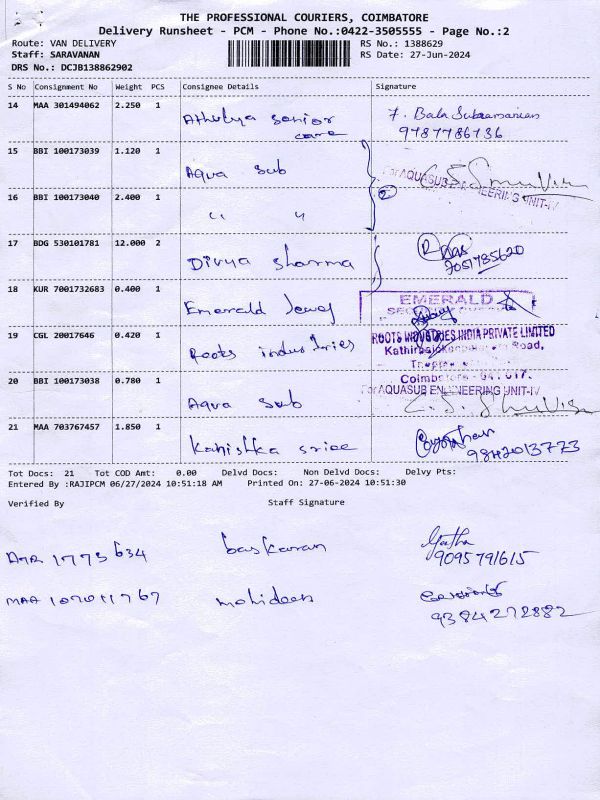 THE PROFESSIONAL COURIERS, COIMBATORE
Delivery Runsheet - PCM - Phone No.:0422-3505555 - Page No.:2
Route: VAN DELIVERY RS No.: 1388629
Staff: SARAVANAN RS Date: 27-Jun-2024
DRS No.: DCJB138862902
S No Consignment No Weight PCS Consignee Details Signature
14 MAA 301494062 2.250 1 Athulya senior care F. Bala Subramanian
9787786736
15 BBI 100173039 1.120 1 Aqua sub
For AQUASUB ENGINEERING UNIT-IV
16 BBI 100173040 2.400 1 " "
17 BDG 530101781 12.000 2 Divya sharma
7051785620
18 KUR 7001732683 0.400 1 Emerald Jewel
EMERALD
19 CGL 20017646 0.420 1 Roots industries
ROOTS INDUSTRIES INDIA PRIVATE LIMITED
Road,
20 BBI 100173038 0.780 1 Aqua sub
For AQUASUB ENGINEERING UNIT-IV
21 MAA 703767457 1.850 1 Kanishka sriee
9842013773
Tot Docs: 21 Tot COD Amt: 0.00 Delvd Docs: Non Delvd Docs: Delvy Pts:
Entered By :RAJIPCM 06/27/2024 10:51:18 AM Printed On: 27-06-2024 10:51:30
Verified By Staff Signature
1773634 baskaran
9095791615
MAA mohideen
9384272882